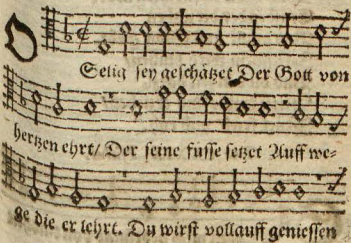 O Selig sey geschätzet Der Gott von
hertzen ehrt/ Der seine füsse setzet Auff we-
ge die er lehrt. Du wirst vollauff geniessen